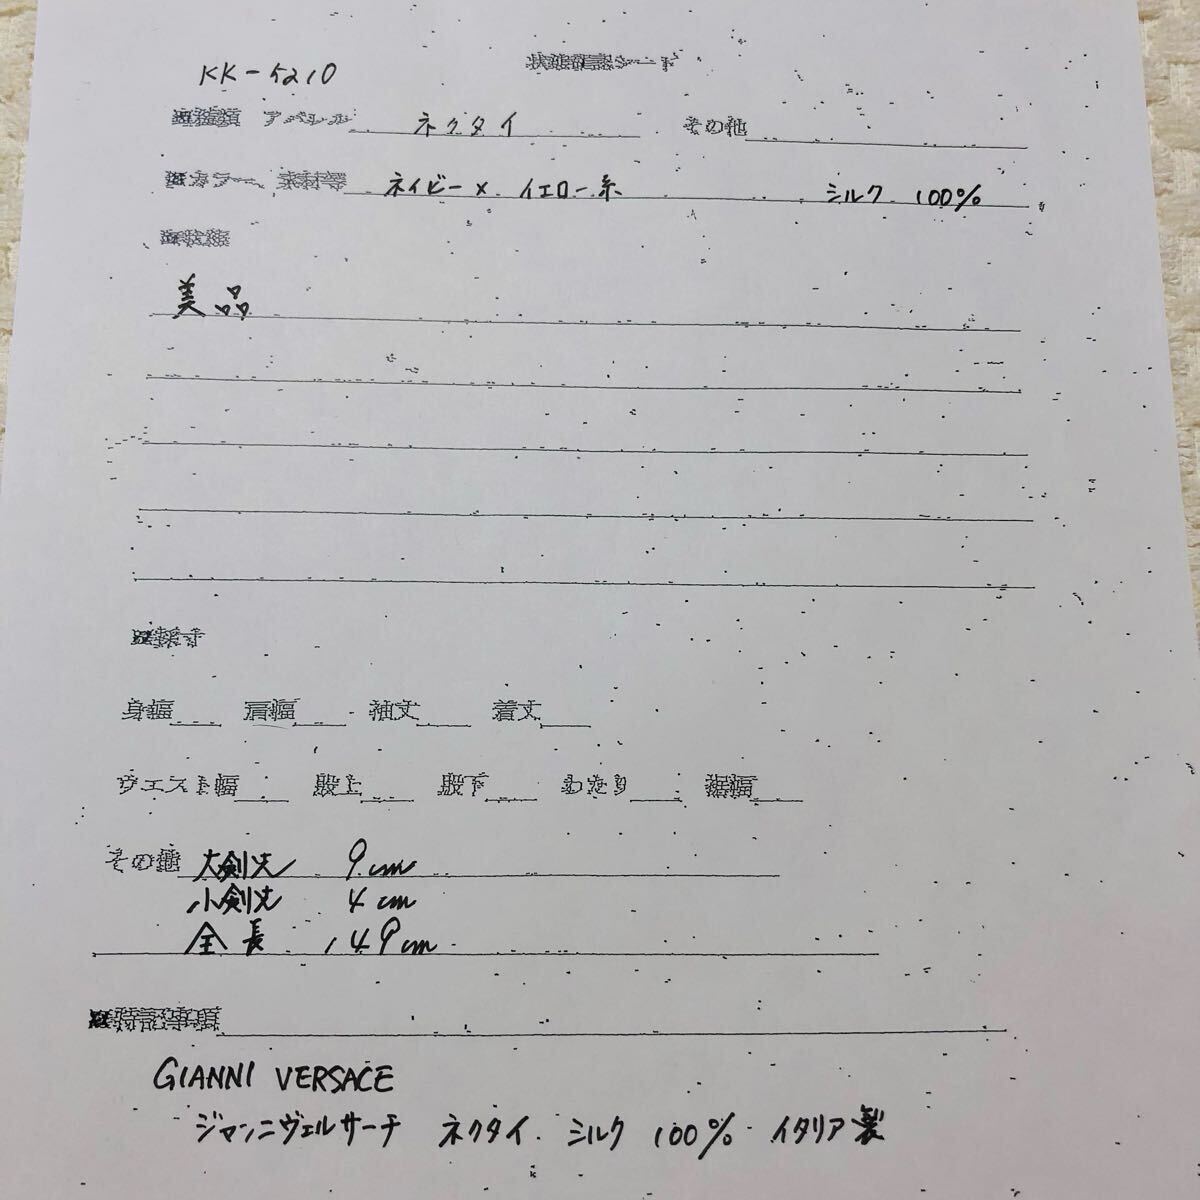 KK-5210
状態確認シート
■種類 アパレル ネクタイ その他
■カラー、素材等 ネイビー× イエロー系 シルク 100%
■状態
美品
■採寸
身幅 肩幅 袖丈 着丈
ウエスト幅 股上 股下 わたり 裾幅
その他 大剣先 9cm
小剣先 4cm
全長 149cm
■特記事項
GIANNI VERSACE
ジャンニヴェルサーチ ネクタイ. シルク 100% イタリア製